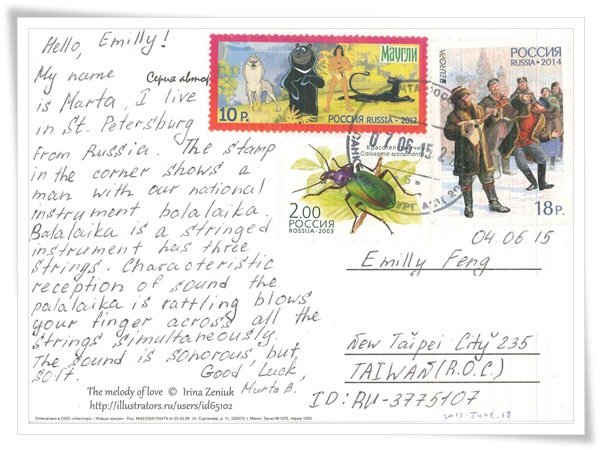 Hello, Emilly!
My name
is Marta, I live
in St. Petersburg
From Russia. The stamp
in the corner shows a
man with our national
instrument balalaika.
Balalaika is a stringed
instrument has three
strings. Characteristic
reception of sound the
palalaika is rattling blows
your finger across all the
strings simultaneously.
The sound is sonorous, but
soft.
Good Luck,
Marta B.
The melody of love © Irina Zeniuk
http://illustrators.ru/users/id65102
Серия автор
МАУГЛИ
10 Р. РОССИЯ RUSSIA • 2012
EUROPA
РОССИЯ
RUSSIA • 2014
18 Р.
07 06 15
Calosoma sycophanta
2.00
РОССИЯ
ROSSIJA • 2003
04.06.15
Emilly Feng
New Taipei City 235
TAIWAN (R.O.C.)
ID: RU-3775107
2015-June, 18